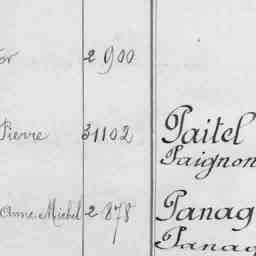 or 2 900
Pierre 31102 Paitel
Paignon
Anne Michel 2 878 Panag
Panag